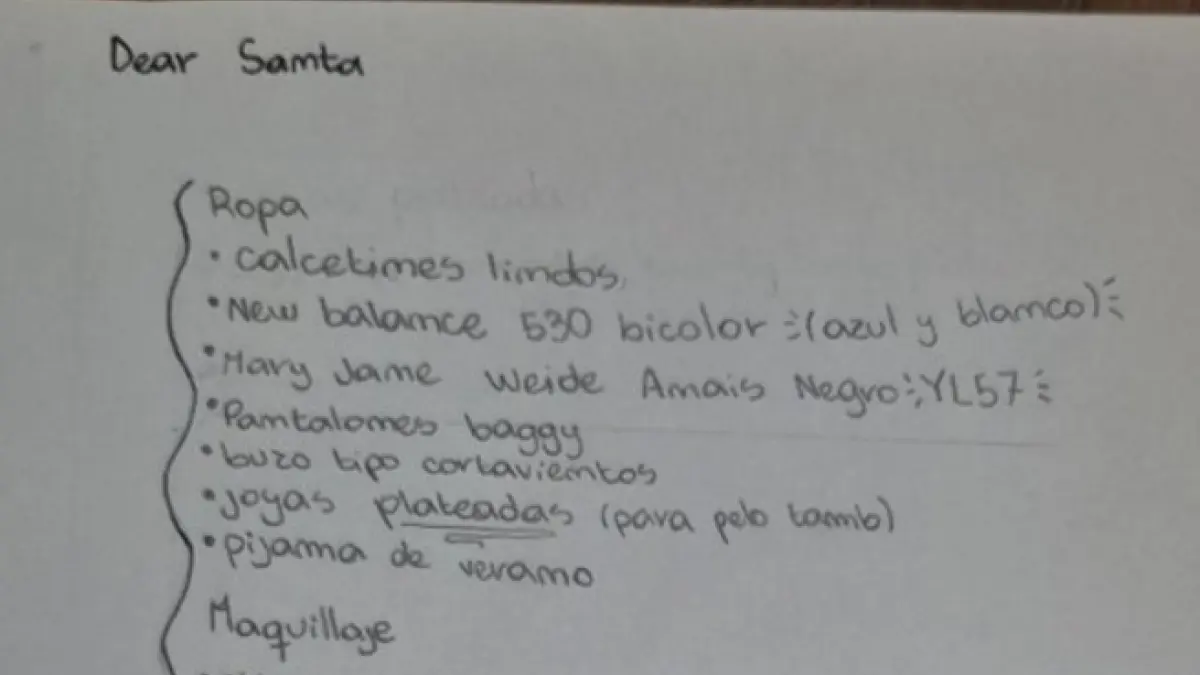 Dear Santa
Ropa
• calcetines lindos
• New balance 530 bicolor (azul y blanco)
• Mary Jane Weide Anais Negro YL57
• Pantalones baggy
• buzo tipo cortavientos
• joyas plateadas (para pelo tamb)
• pijama de verano
Maquillaje